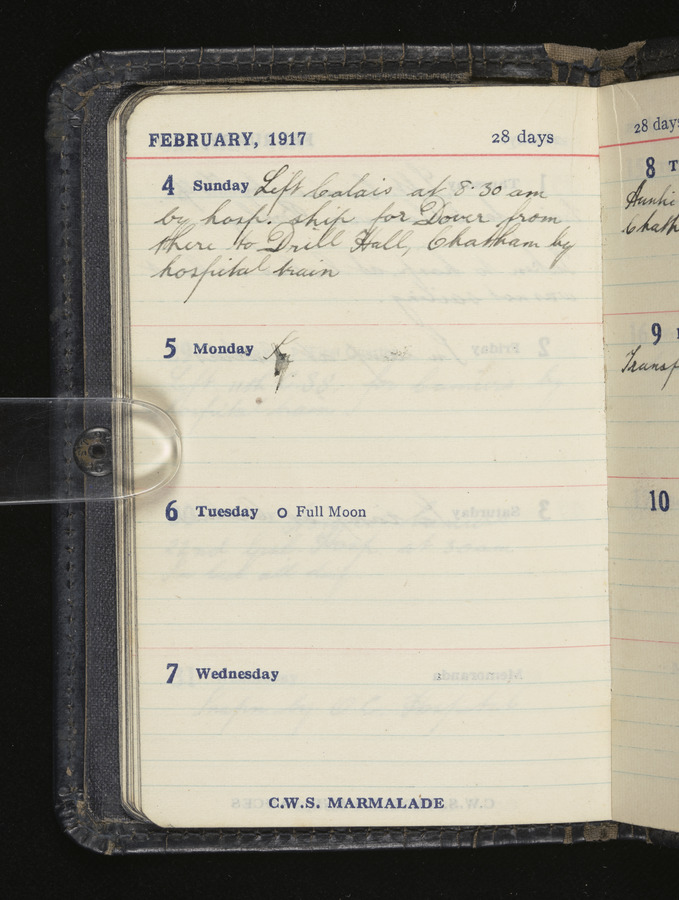 FEBRUARY, 1917 28 days
4 Sunday Left Calais at 8.30 am
by hosp. ship for Dover from
there to Drill Hall, Chatham by
hospital train
5 Monday
6 Tuesday O Full Moon
7 Wednesday
C.W.S. MARMALADE
28 days
8 T
Auntie
Chath
9
Transf
10